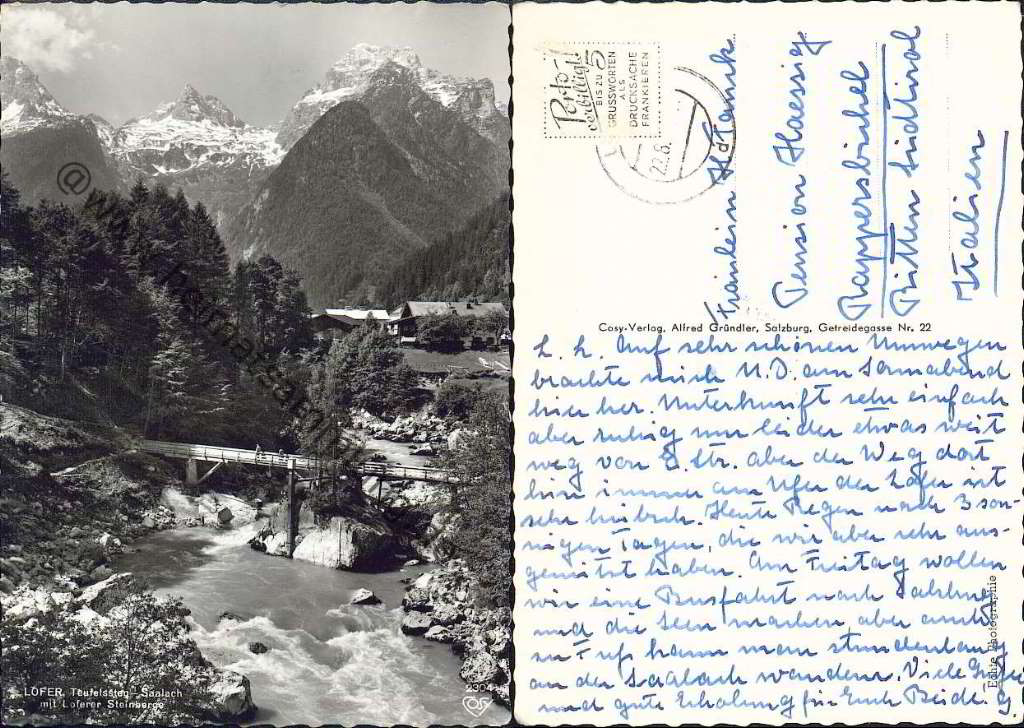 LOFER, Teufelssteg-Saalach
mit Loferer Steinberge
2304
COSY
Porto-
verbilligt!
BIS ZU 5
GRUSSWORTEN
ALS
DRUCKSACHE
FRANKIEREN
22.8.
Fräulein
Pension Haessig
Rappersbichel
Brixen Südtirol
Italien
Cosy-Verlag, Alfred Gründler, Salzburg, Getreidegasse Nr. 22
L. H. Auf sehr schönen Umwegen
brachte mich U.D. am Sonnabend
hier her. Unterkunft sehr einfach
aber ruhig nur leider etwas weit
weg von E. Str. aber der Weg dort
hin immer am Ufer der Lofer ist
sehr hübsch. Heute Regen nach 3 son-
nigen Tagen, die wir aber sehr aus-
genützt haben. Am Freitag wollen
wir eine Busfahrt nach Salzburg
und die Seen machen, aber auch
zu Fuß kann man stundenlang
an der Saalach wandern. Viele Grüße
und gute Erholung für Euch Beide.
Echte Photographie